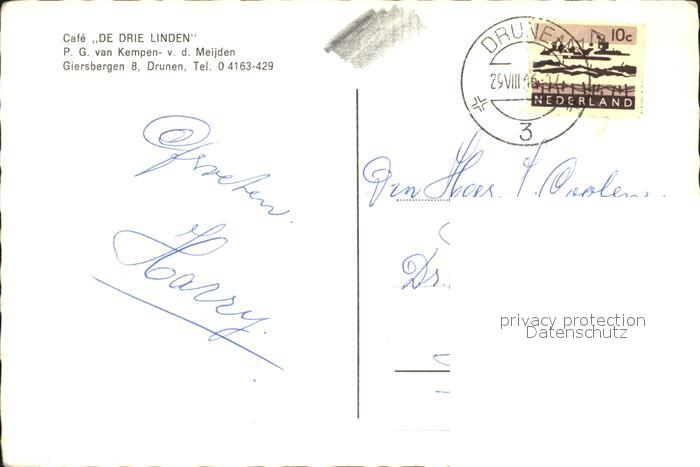 Café „DE DRIE LINDEN"
P. G. van Kempen- v. d. Meijden
Giersbergen 8, Drunen, Tel. 0 4163-429
DRUNEN
29 VIII 66-17
3
10c
NEDERLAND
Groeten.
Harry.
Den Heer. J. Coolen.
Dr.
privacy protection
Datenschutz